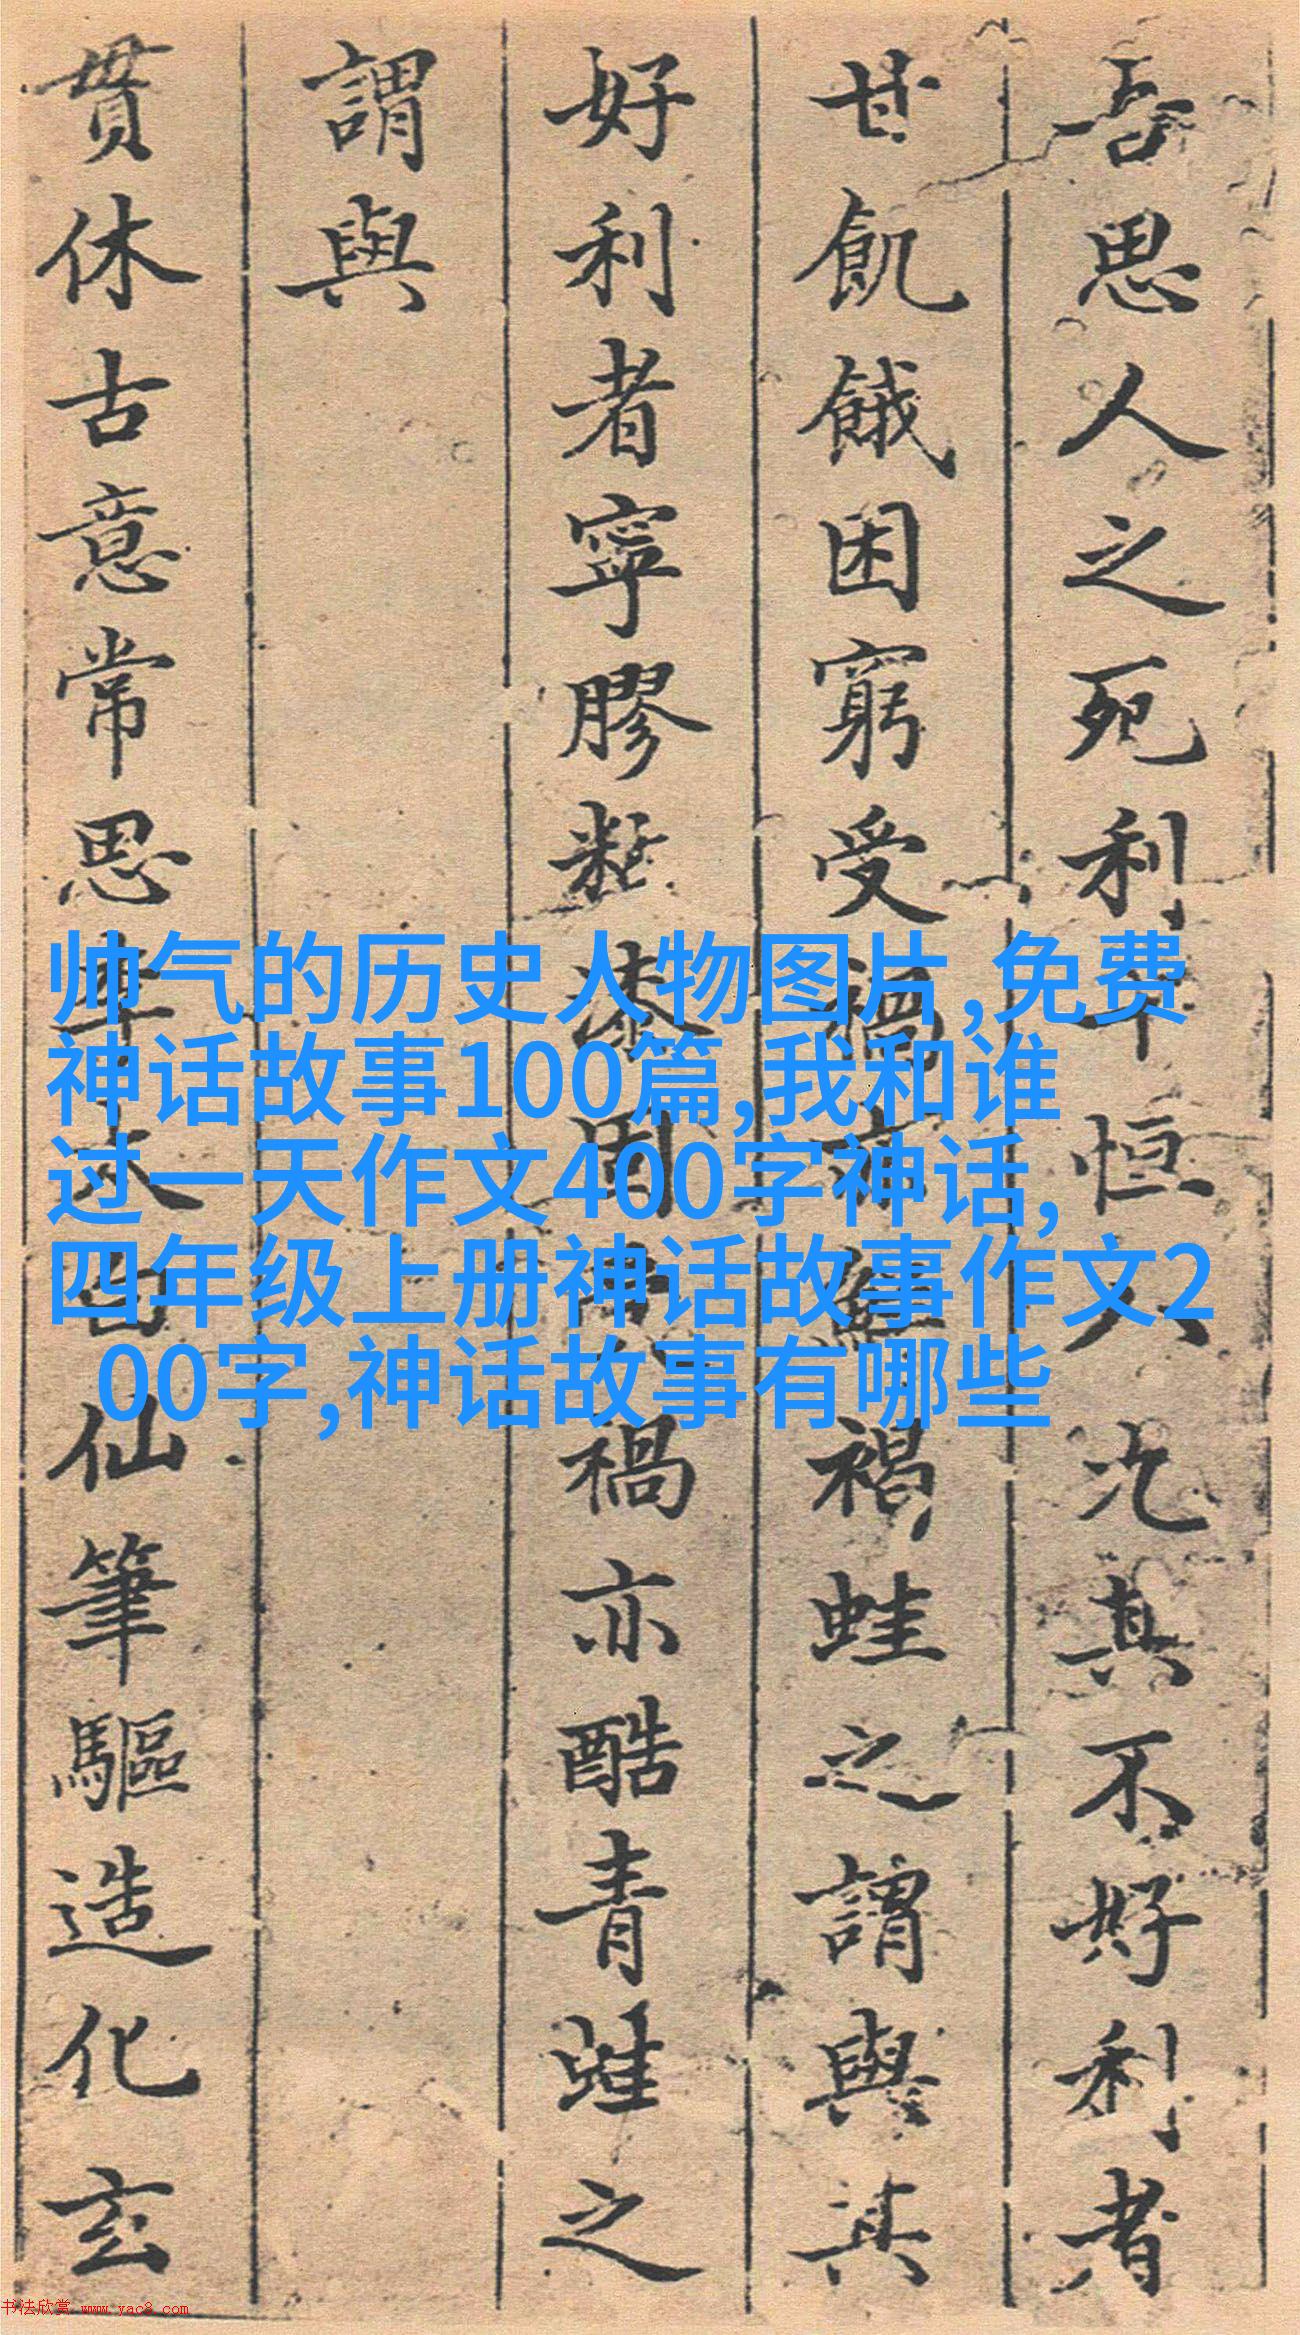 吾思人之死利十恒八九其不好利者
甘飢餓困窮受禍亦
褐蛙之謂與其
好利者寧膠
漆
禍亦酷青蛙之
謂與
贯休古意常思李太白仙筆驅造化玄
帅气的历史人物图片,免费
神话故事100篇,我和谁
过一天作文400字神话,
四年级上册神话故事作文2
00字,神话故事有哪些
书法欣赏 www.yac8.com